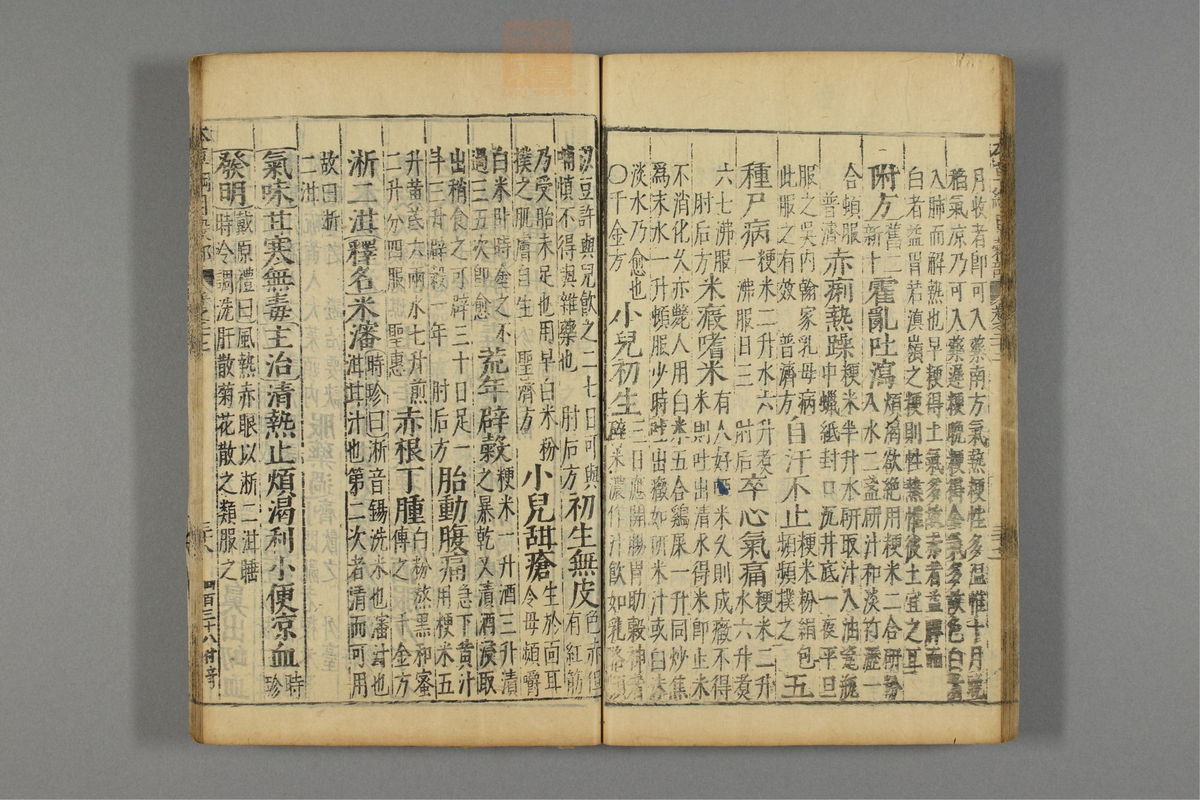 月收者卽可入藥南方氣熱粳性多溫惟十月晚
稻氣凉乃可入藥遲粳晚粳得金氣多故色白者
入肺而解熱也早粳得土氣多故赤者益脾而
白者益胃若滇嶺之粳則性熱惟彼土宜之耳
附方舊二新十霍亂吐瀉煩渴欲絶用粳米二合研粉
入水二盞研汁和淡竹瀝一
合頓服
普濟赤痢熱躁粳米半升水研取汁入油瓷瓶
中蠟紙封口沉井底一夜平旦
服之吳内翰家乳母病
此服之有效 普濟方自汗不止粳米粉絹包
頻頻撲之五
種尸病粳米二升水六升煮
一沸服日三 肘后卒心氣痛粳米二升
水六升煮
六七沸服
肘后方米瘕嗜米有人好啞米久則成瘕不得
米則吐出清水得米卽止米
不消化久亦斃人用白米五合鷄屎一升同炒焦
爲末水一升頓服少時吐出瘕如研米汁或白沫
淡水乃愈也
○千金方小兒初生三日應開腸胃助穀神者
碎米濃作汁飲如乳酪頭
豆許與兒飲之二七日可與
哺慎不得與雜藥也 肘后方初生無皮色赤但
有紅筋
乃受胎未足也用早白米粉
撲之肌膚自生 聖濟方小兒甜瘡生於面耳
令母頻嚼
白米卧時塗之不
過三五次卽愈荒年辟穀粳米一升酒三升漬
之暴乾又漬酒浸取
出稍食之可辟三十日足一
斗三升辟穀一年 肘后方胎動腹痛急下黃汁
用粳米五
升黃芪六兩水七升煎
二升分四服 聖惠赤根丁腫白粉熬黑和蜜
傅之 千金方
淅二泔釋名米瀋時珍曰淅音錫洗米也瀋汁也
泔其汁也第二次者清而可用
故曰淅
二泔
氣味甘寒無毒主治清熱止煩渴利小便凉血時
珍
發明戴原禮曰風熱赤眼以淅二泔睡
時冷調洗肝散菊花散之類服之